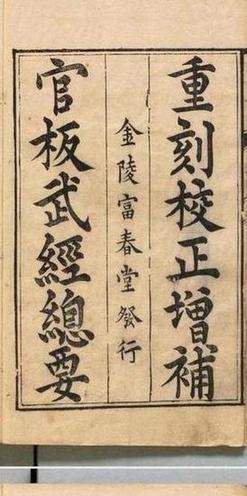 重刻校正增補
金陵富春堂發行
官板武經總要